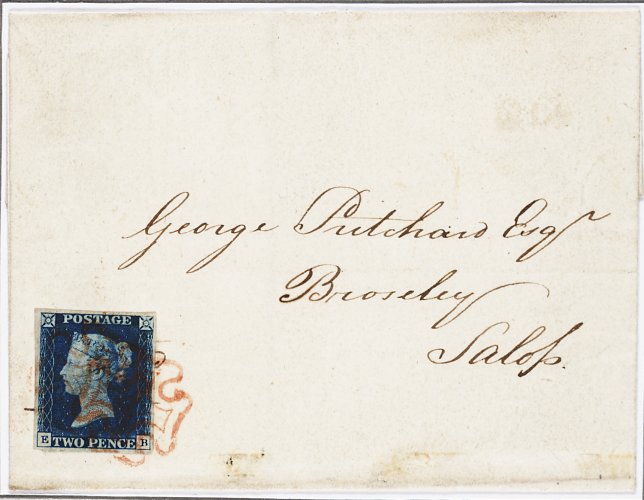 George Pritchard Esqr
Broseley
Salop.
POSTAGE
E TWO PENCE B